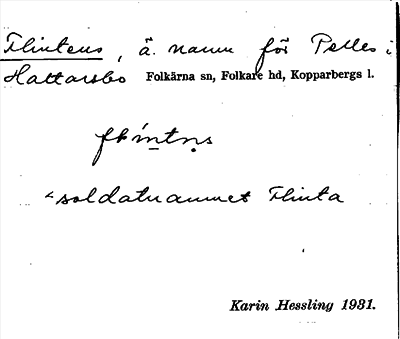 Flintens, ä. namn för Pelles i
Hattarsbo Folkärna sn, Folkare hd, Kopparbergs l.
flintn̥s
< soldatnamnet Flinta
Karin Hessling 1931.